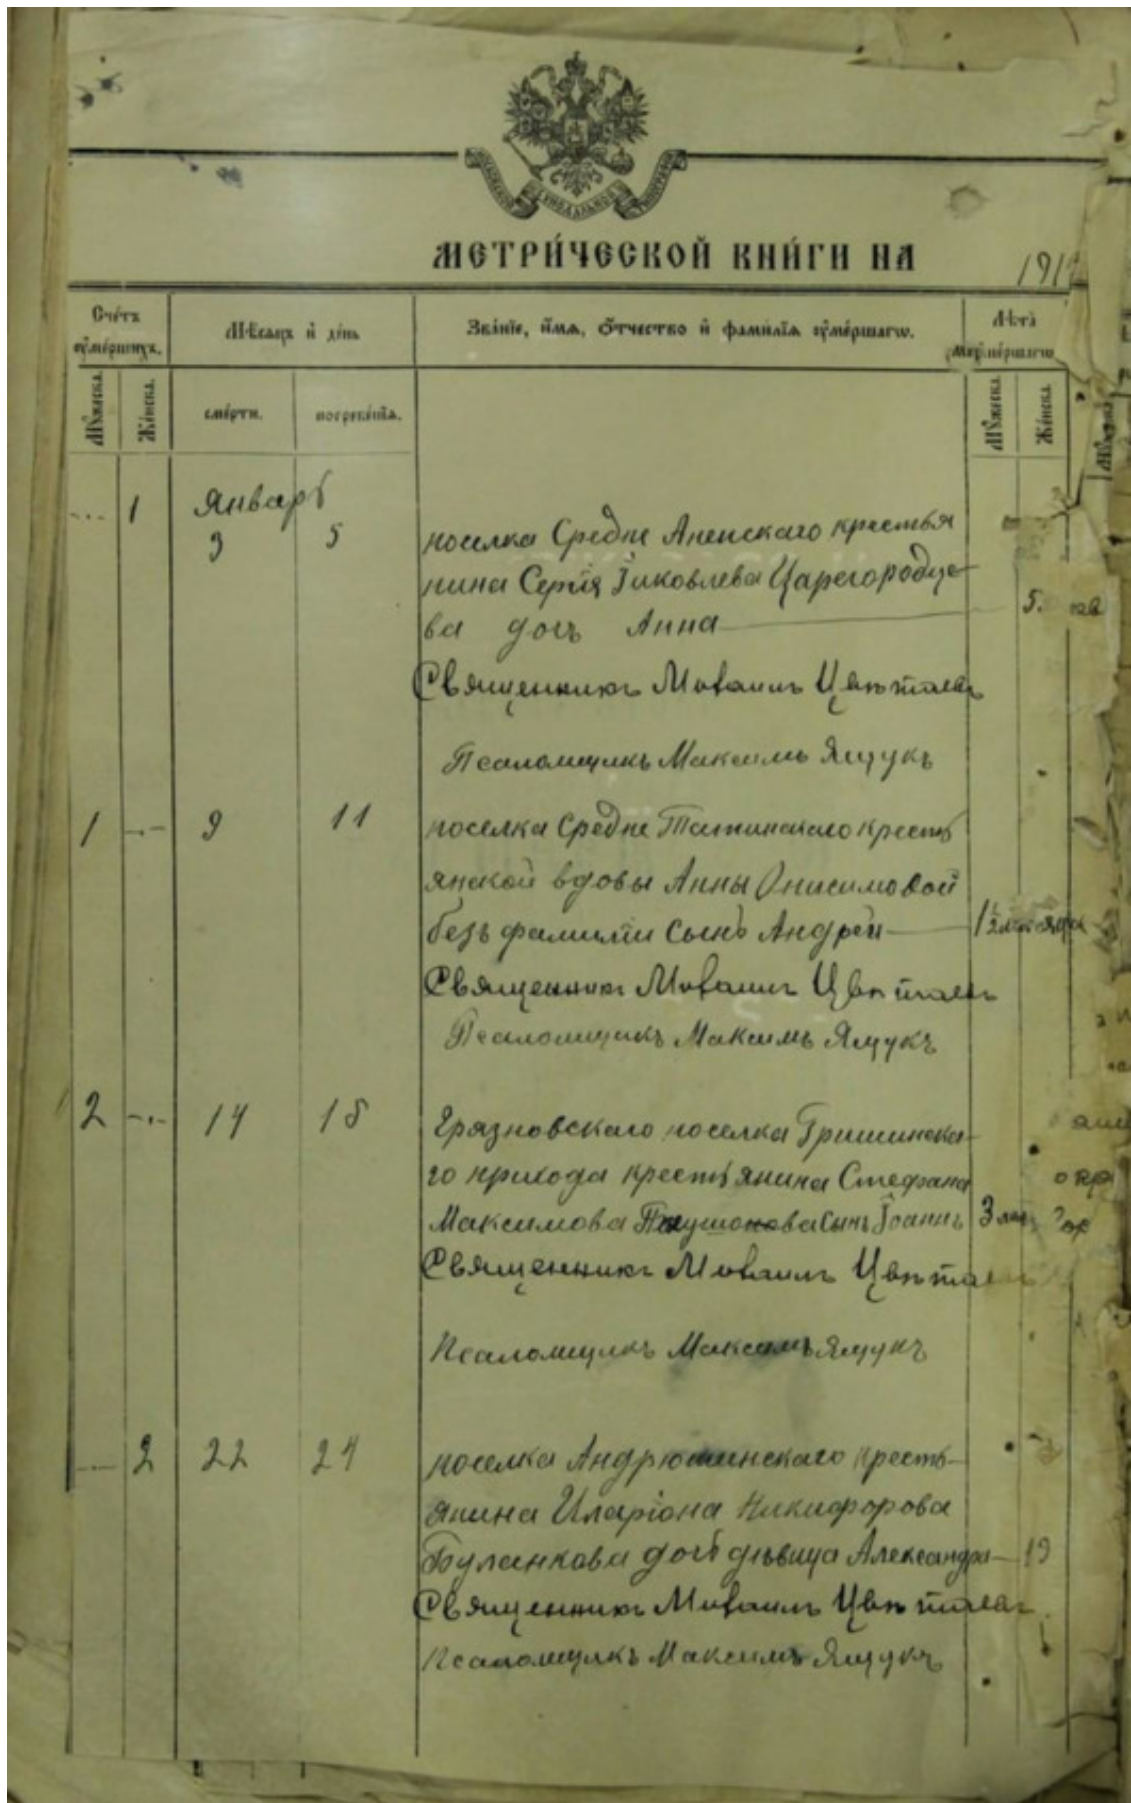 МЕТРИ́ЧЕСКОЙ КНИ́ГИ НА 191
Сче́тъ ᲂу҆ме́ршихъ.
Мѣ́сѧцъ и҆ де́нь
Зва́нїе, и҆́мѧ, ѻ҆́тчество и҆ фами́лїѧ ᲂу҆ме́ршагѡ.
Лѣ́та ᲂу҆ме́ршагѡ
Мꙋ́жеска.
Же́нска.
сме́рти.
погребе́нїѧ.
Мꙋ́жеска.
Же́нска.
1
Январь
3
5
поселка Средне крестья
нина Сергія Іаковлева Царегородце-
ва дочь Анна
5.
Священникъ Михаилъ Цвѣтаевъ
Псаломщикъ Максимъ Ящукъ
1
9
11
поселка Средне кресть
янской вдовы Анны Онисимовой
безъ фамиліи сынъ Андрей
1 1/2
Священникъ Михаилъ Цвѣтаевъ
Псаломщикъ Максимъ Ящукъ
2
14
Грязновскаго поселка Гришинска-
го прихода крестьянина Стефана
Максимова сынъ Іоаннъ
3
Священникъ Михаилъ Цвѣтаевъ
Псаломщикъ Максимъ Ящукъ
2
22
24
поселка Андрюшинскаго кресть-
янина Иларіона Никифорова
Буланкова дочь дѣвица Александра
19
Священникъ Михаилъ Цвѣтаевъ
Псаломщикъ Максимъ Ящукъ